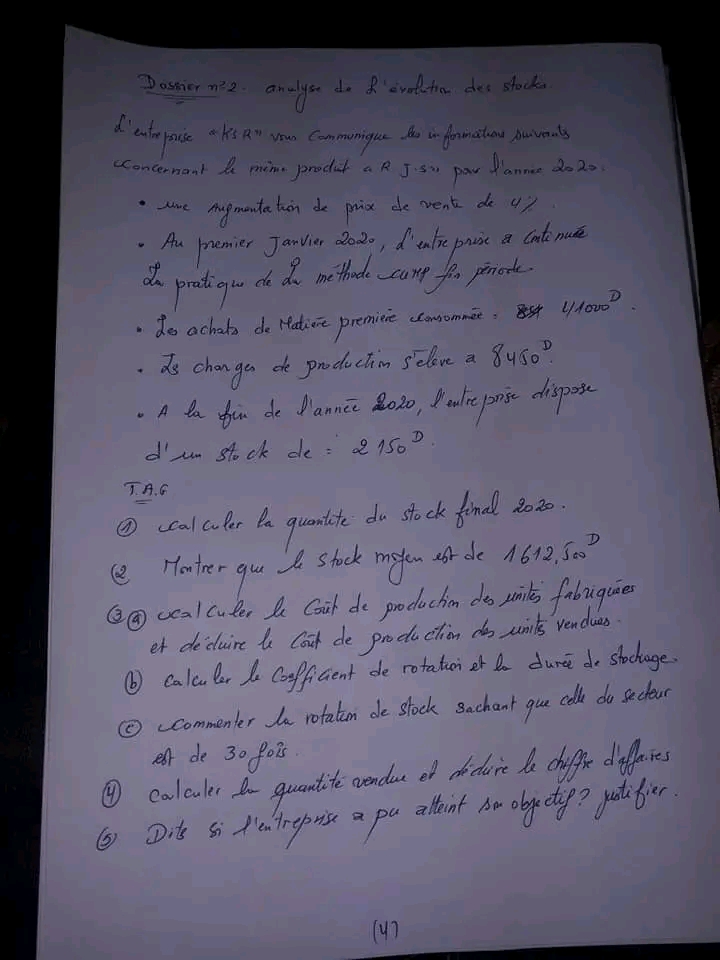 Dossier n°2. analyse de l'évolution des stocks.
L'entreprise "KSR" vous communique les informations suivants
concernant le même produit "R J.S" pour l'année 2020.
• une augmentation de prix de vente de 4%.
• Au premier Janvier 2020, l'entreprise a continuée
La pratique de La méthode cump fin période.
• Les achats de Matière première consommée = 41000D.
• Les charges de production s'élève a 8450D.
• A la fin de l'année 2020, l'entreprise dispose
d'un stock de = 2150D.
T.A.F
① calculer la quantité du stock final 2020.
② Montrer que le stock moyen est de 1612,500D
③ ⓐ calculer le Coût de production des unités fabriquées
et déduire le Coût de production des unités vendues.
ⓑ calculer le Coefficient de rotation et la durée de stockage.
ⓒ commenter la rotation de stock sachant que celle du secteur
est de 30 fois.
④ calculer la quantité vendue et déduire le chiffre d'affaires
⑤ Dite si l'entreprise a pu atteint son objectif? justifier.
(4)